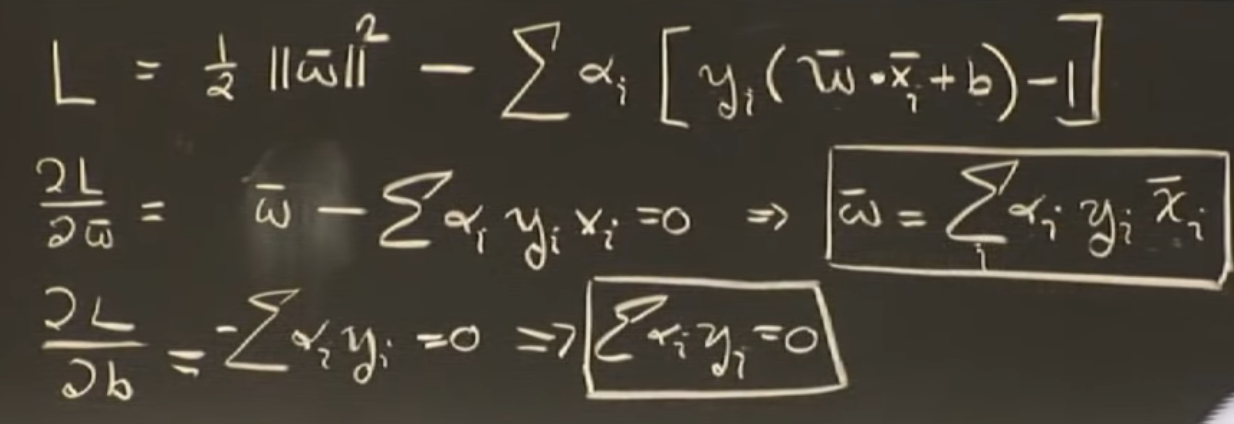 L = ½ ||w̄||² − ∑ αᵢ [ yᵢ ( w̄ • x̄ᵢ + b ) − 1 ]
∂L/∂w̄ = w̄ − ∑ αᵢ yᵢ xᵢ = 0 ⇒ w̄ = ∑ᵢ αᵢ yᵢ x̄ᵢ
∂L/∂b = −∑ αᵢ yᵢ = 0 ⇒ ∑ αᵢ yᵢ = 0